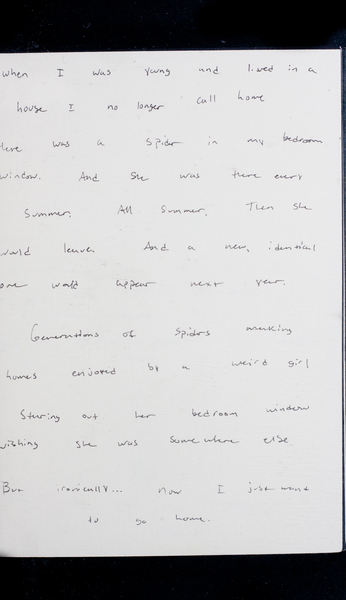 when I was young and lived in a
house I no longer call home
there was a spider in my bedroom
window. And she was there every
summer. All summer. Then she
would leave. And a new, identical
one would appear next year.
Generations of spiders making
homes enjoyed by a weird girl
Staring out her bedroom window
wishing she was somewhere else
But ironically... now I just want
to go home.